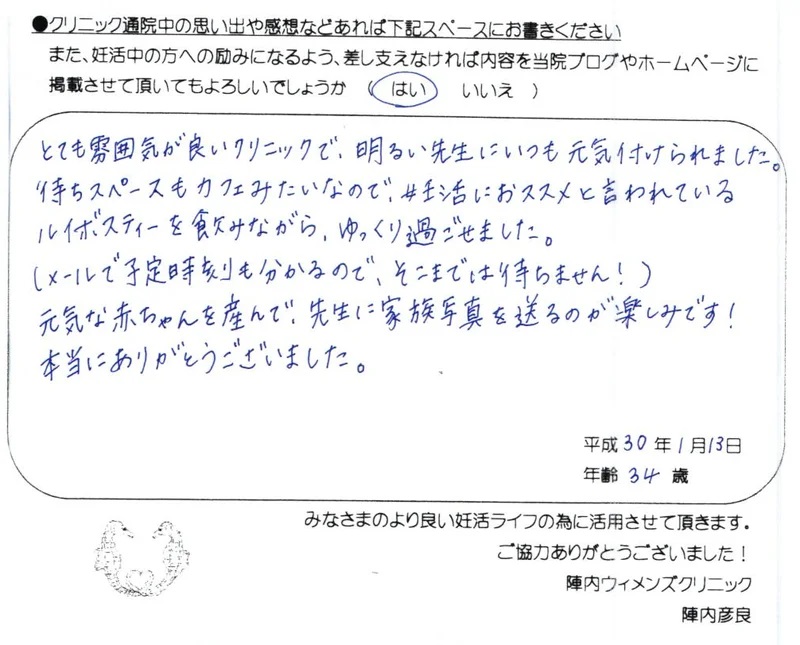 ●クリニック通院中の思い出や感想などあれば下記スペースにお書きください
また、妊活中の方への励みになるよう、差し支えなければ内容を当院ブログやホームページに
掲載させて頂いてもよろしいでしょうか ( はい いいえ )
とても雰囲気が良いクリニックで、明るい先生にいつも元気付けられました。
待ちスペースもカフェみたいなので、妊活におススメと言われている
ルイボスティーを飲みながら、ゆっくり過ごせました。
(メールで予定時刻も分かるので、そこまでは待ちません!)
元気な赤ちゃんを産んで、先生に家族写真を送るのが楽しみです!
本当にありがとうございました。
平成 30 年 1 月 13 日
年齢 34 歳
みなさまのより良い妊活ライフの為に活用させて頂きます。
ご協力ありがとうございました!
陣内ウィメンズクリニック
陣内彦良